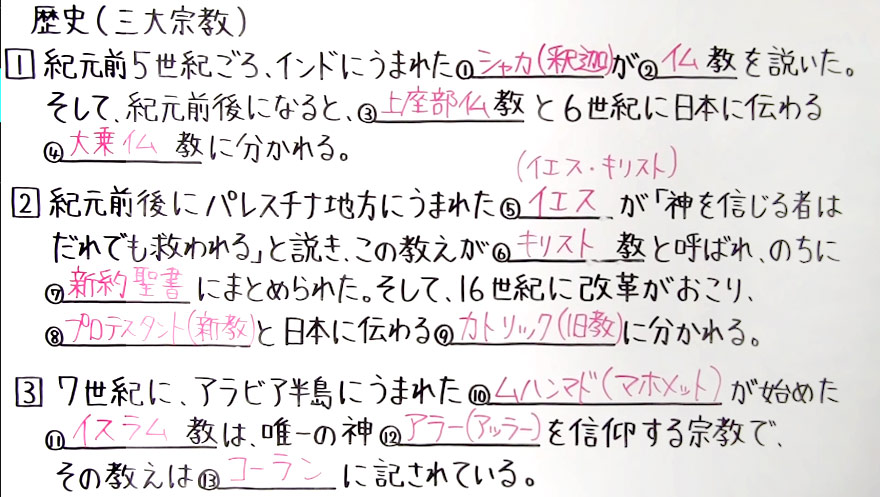 歴史(三大宗教)
1 紀元前5世紀ごろ、インドにうまれた①シャカ(釈迦)が②仏教を説いた。
そして、紀元前後になると、③上座部仏教と6世紀に日本に伝わる
④大乗仏教に分かれる。
(イエス・キリスト)
2 紀元前後にパレスチナ地方にうまれた⑤イエスが「神を信じる者は
だれでも救われる」と説き、この教えが⑥キリスト教と呼ばれ、のちに
⑦新約聖書にまとめられた。そして、16世紀に改革がおこり、
⑧プロテスタント(新教)と日本に伝わる⑨カトリック(旧教)に分かれる。
3 7世紀に、アラビア半島にうまれた⑩ムハンマド(マホメット)が始めた
⑪イスラム教は、唯一の神⑫アラー(アッラー)を信仰する宗教で、
その教えは⑬コーランに記されている。